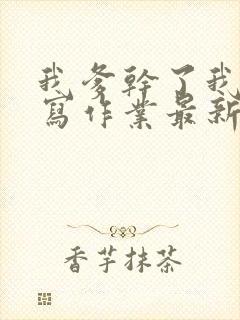 我爹幹了我
寫作業最新
香芋抹茶